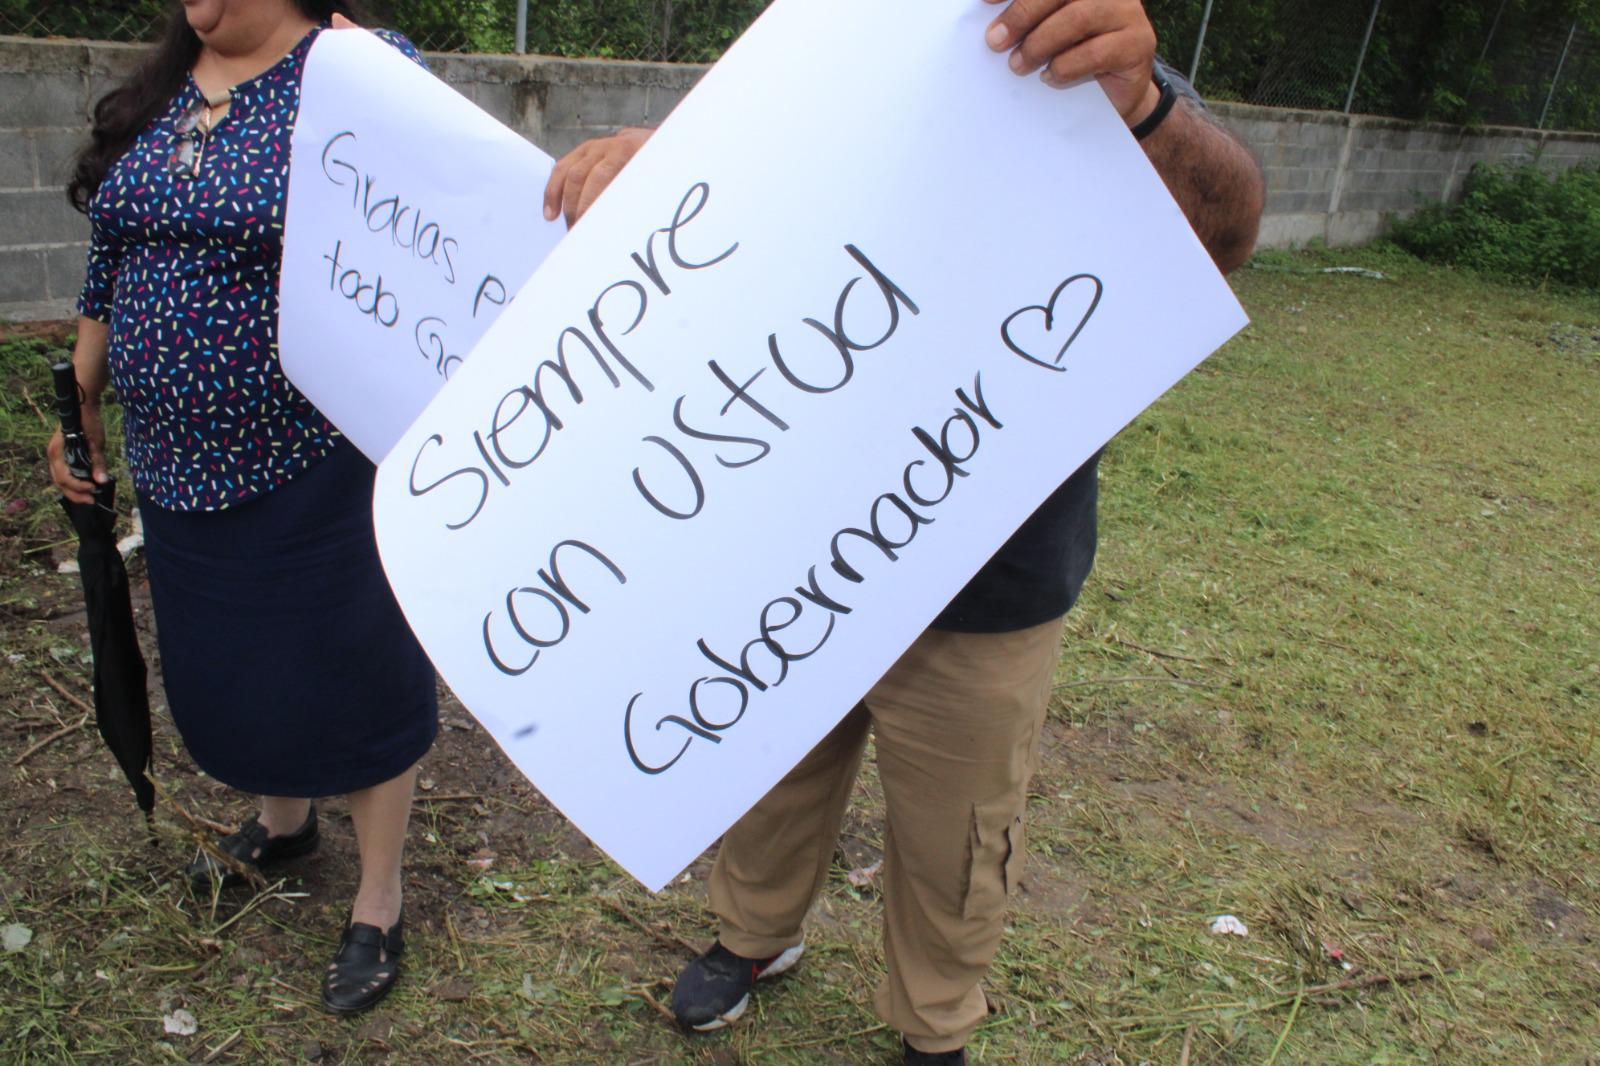 Gracias
todo
Siempre
con ustud
Gobernador